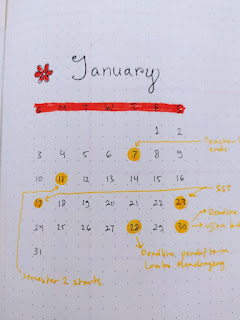 January
S M T W T F S
1 2
Teacher
ends
3 4 5 6 7 8 9
10 11 12 13 14 15 16
SST
17 18 19 20 21 22 23
Deadline
24/31 25 26 27 28 29 30
31
Deadline pendaftaran
Lomba
semester 2 starts